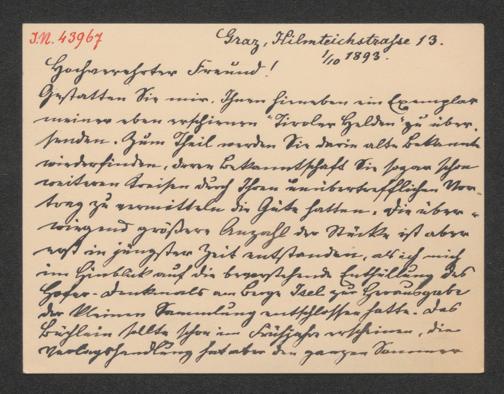 J.N. 43967
Graz, Hilmteichstrasse 13.
1/10 1893.
Hochverehrter Freund!
Gestatten Sie mir, Ihnen hierneben ein Exemplar
meiner eben erschienen "Tiroler Helden" zu über-
senden. Zum Theil werden Sie darin alte Bekannte
wiederfinden, deren Bekanntschaft Sie sogar schon
weiteren Kreisen durch Ihren unübertrefflichen Vor-
trag zu vermitteln die Güte hatten. Die über-
wiegend größere Anzahl der Stücke ist aber
erst in jüngster Zeit entstanden, als ich mich
im Hinblick auf die bevorstehende Enthüllung des
Hofer-Denkmals am Berge Isel zur Herausgabe
der kleinen Sammlung entschlossen hatte. Das
Büchlein sollte schon im Frühjahr erscheinen, die
Verlagshandlung hat aber den ganzen Sommer